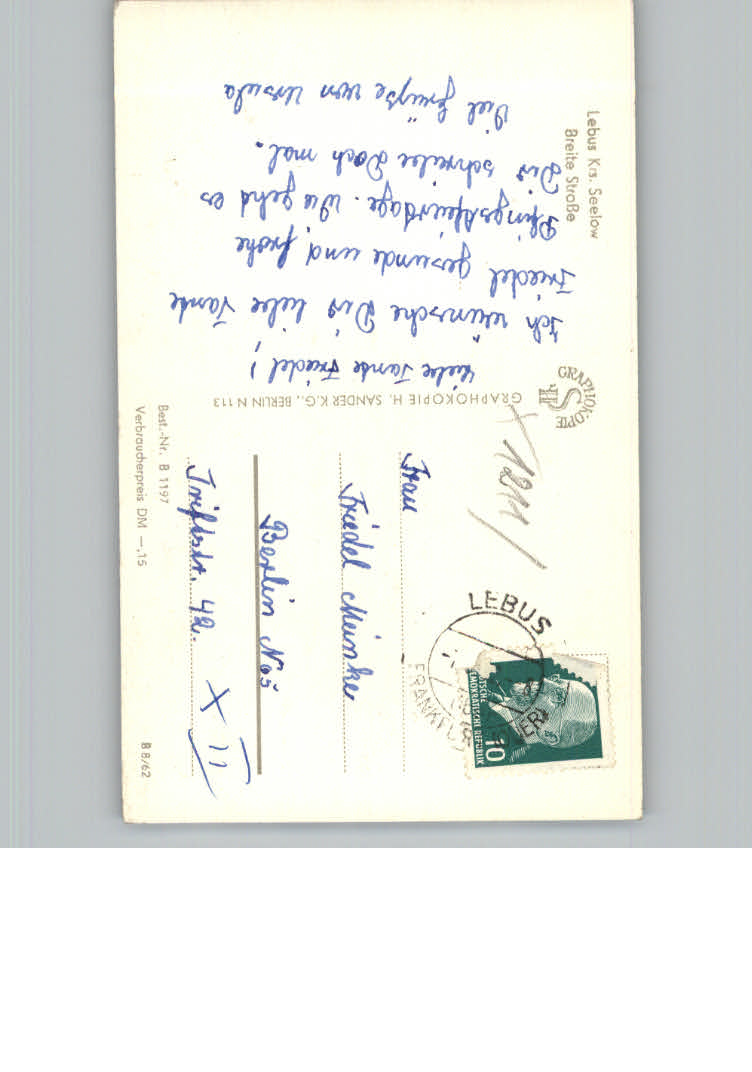 Lebus Krs. Seelow
Breite Straße
Liebe Tante Friedel!
Ich wünsche Dir liebe Tante
Friedel gesunde und frohe
Pfingstfeierdage. Wie gehd es
Dir schreibe Doch mal.
Viel Grüße von Ursula
GRAPHOKOPIE
H S
GRAPHOKOPIE H. SANDER K.G., BERLIN N 113
X 1211/
LEBUS
FRANKFU (ODER)
DEUTSCHE
DEMOKRATISCHE REPUBLIK
10
Frau
Friedel Meinke
Berlin No5
Triftstr. 42.
X II
Best.-Nr. B 1197
Verbraucherpreis DM —,15
B 8/62